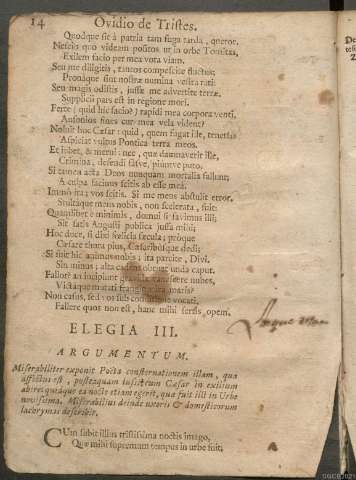 14 Ovidio de Tristes.
Quodque sit à patria tam fuga tarda, queror.
Nescius quo videam positos ut in orbe Tomitas,
Exilem facio per mea vota viam.
Seu me diligitis, tantos compescite fluctus;
Pronaque sint nostræ numina vestra rati.
Seu magis odistis, jussæ me advertite terræ.
Supplicii pars est in regione mori.
Ferte (quid hic facio?) rapidi mea corpora venti,
Ausonios fines cur mea vela vident?
Noluit hoc Cæsar: quid, quem fugat ille, tenetis?
Aspiciat vultus Pontica terra meos.
Et jubet, & merui: nec, quæ damnaverit ille,
Crimina, defendi fasve, piumve puto.
Si tamen acta Deos nunquam mortalia fallunt;
A culpa facinus scitis ab esse mea.
Immo ita; vos scitis. Si me meus abstulit error,
Stultaque mens nobis, non scelerata, fuit:
Quamlibet è minimis, domui si favimus illi;
Sit satis Augusti publica jussa mihi;
Hoc duce, si dixi fœlicia sæcula; pròque
Cæsare thura pius, Cæsaribusque dedi;
Si fuit hic animus nobis; ita parcite, Divi.
Sin minus; alta cadens obruat unda caput.
Fallor? an incipiunt gravidæ vanescere nubes,
Victaque mutati frangitur ira maris?
Non casus, sed vos sub conditione vocati,
Fallere quos non est, hanc mihi fertis opem.
ELEGIA III.
ARGUMENTUM.
Miserabiliter exponit Poëta consternationem illam, qua
afflictus est, posteaquam jussus Cæsar in exilium
abire: quidque ea nocte etiam egerit, qua fuit illi in Urbe
novissima. Miserabilius deinde uxoris & domesticorum
lachrymas describit.
CUm subit illius tristissima noctis imago,
Quæ mihi supremum tempus in urbe fuit;